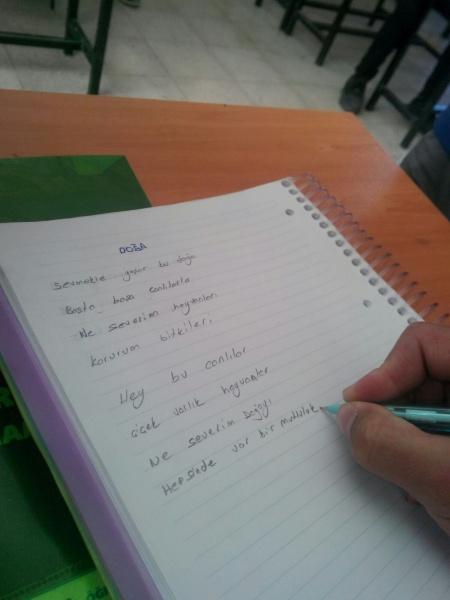 DOĞA
Sevmekle geçer bu doğa
Baştan başa canlılarla
Ne severim hayvanları
Korurum bitkileri
Hey bu canlılar
çiçek varlık hayvanlar
Ne severim Doğayı
Hepsinde var bir mutluluk